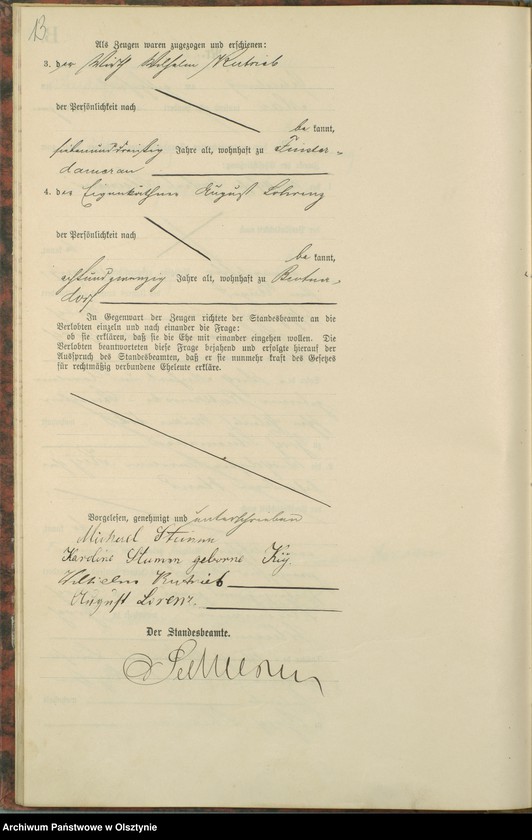 13
Als Zeugen waren zugezogen und erschienen:
3. der Wirth Wilhelm Kutrieb
der Persönlichkeit nach
be kannt,
siebenunddreißig Jahre alt, wohnhaft zu
damerau
4. der Eigenkäthner August Lohrenz
der Persönlichkeit nach
be kannt,
achtundzwanzig Jahre alt, wohnhaft zu
dorf
In Gegenwart der Zeugen richtete der Standesbeamte an die
Verlobten einzeln und nach einander die Frage:
ob sie erklären, daß sie die Ehe mit einander eingehen wollen. Die
Verlobten beantworteten diese Frage bejahend und erfolgte hierauf der
Ausspruch des Standesbeamten, daß er sie nunmehr kraft des Gesetzes
für rechtmäßig verbundene Eheleute erkläre.
Vorgelesen, genehmigt und unterschrieben
Michael Stumm
Karoline Stumm geborne
Wilhelm Kutrieb
August Lorenz.
Der Standesbeamte.
Archiwum Państwowe w Olsztynie